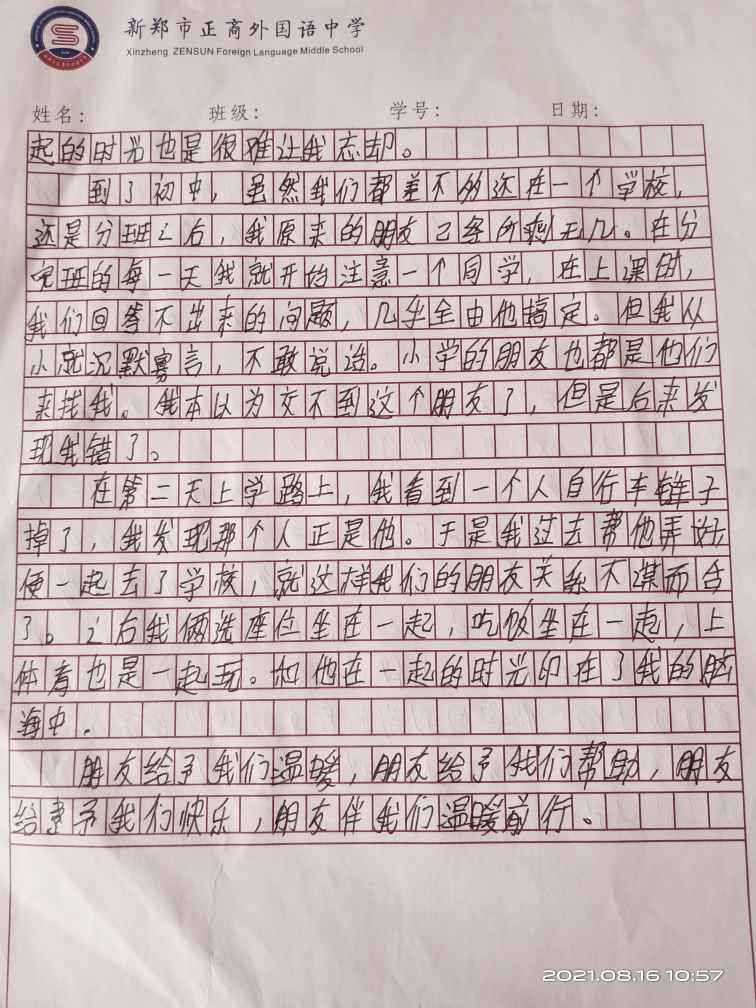 新郑市正商外国语中学
Xinzheng ZENSUN Foreign Language Middle School
姓名： 班级： 学号： 日期：
起的时光也是很难让我忘却。
到了初中，虽然我们都差不多还在一个学校，
还是分班之后，我原来的朋友已经所剩无几。在分
完班的每一天我就开始注意一个同学，在上课时，
我们回答不出来的问题，几乎全由他搞定。但我从
小就沉默寡言，不敢说话。小学的朋友也都是他们
来找我。我本以为交不到这个朋友了，但是后来发
现我错了。
在第二天上学路上，我看到一个人自行车链子
掉了，我发现那个人正是他。于是我过去帮他弄好
便一起去了学校，就这样我们的朋友关系不谋而合
了。之后我俩选座位坐在一起，吃饭坐在一起，上
体育也是一起玩。和他在一起的时光印在了我的脑
海中.
朋友给予我们温暖，朋友给予我们帮助，朋友
给予我们快乐，朋友伴我们温暖前行。
2021.08.16 10:57